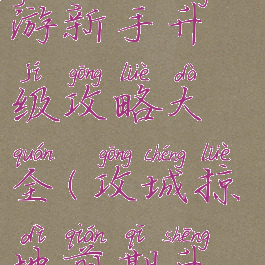 游新手升
jí gōng lüè dà
级攻略大
quán gōng chéng lüè
全(攻城掠
dì qián qī shēng
地前期升